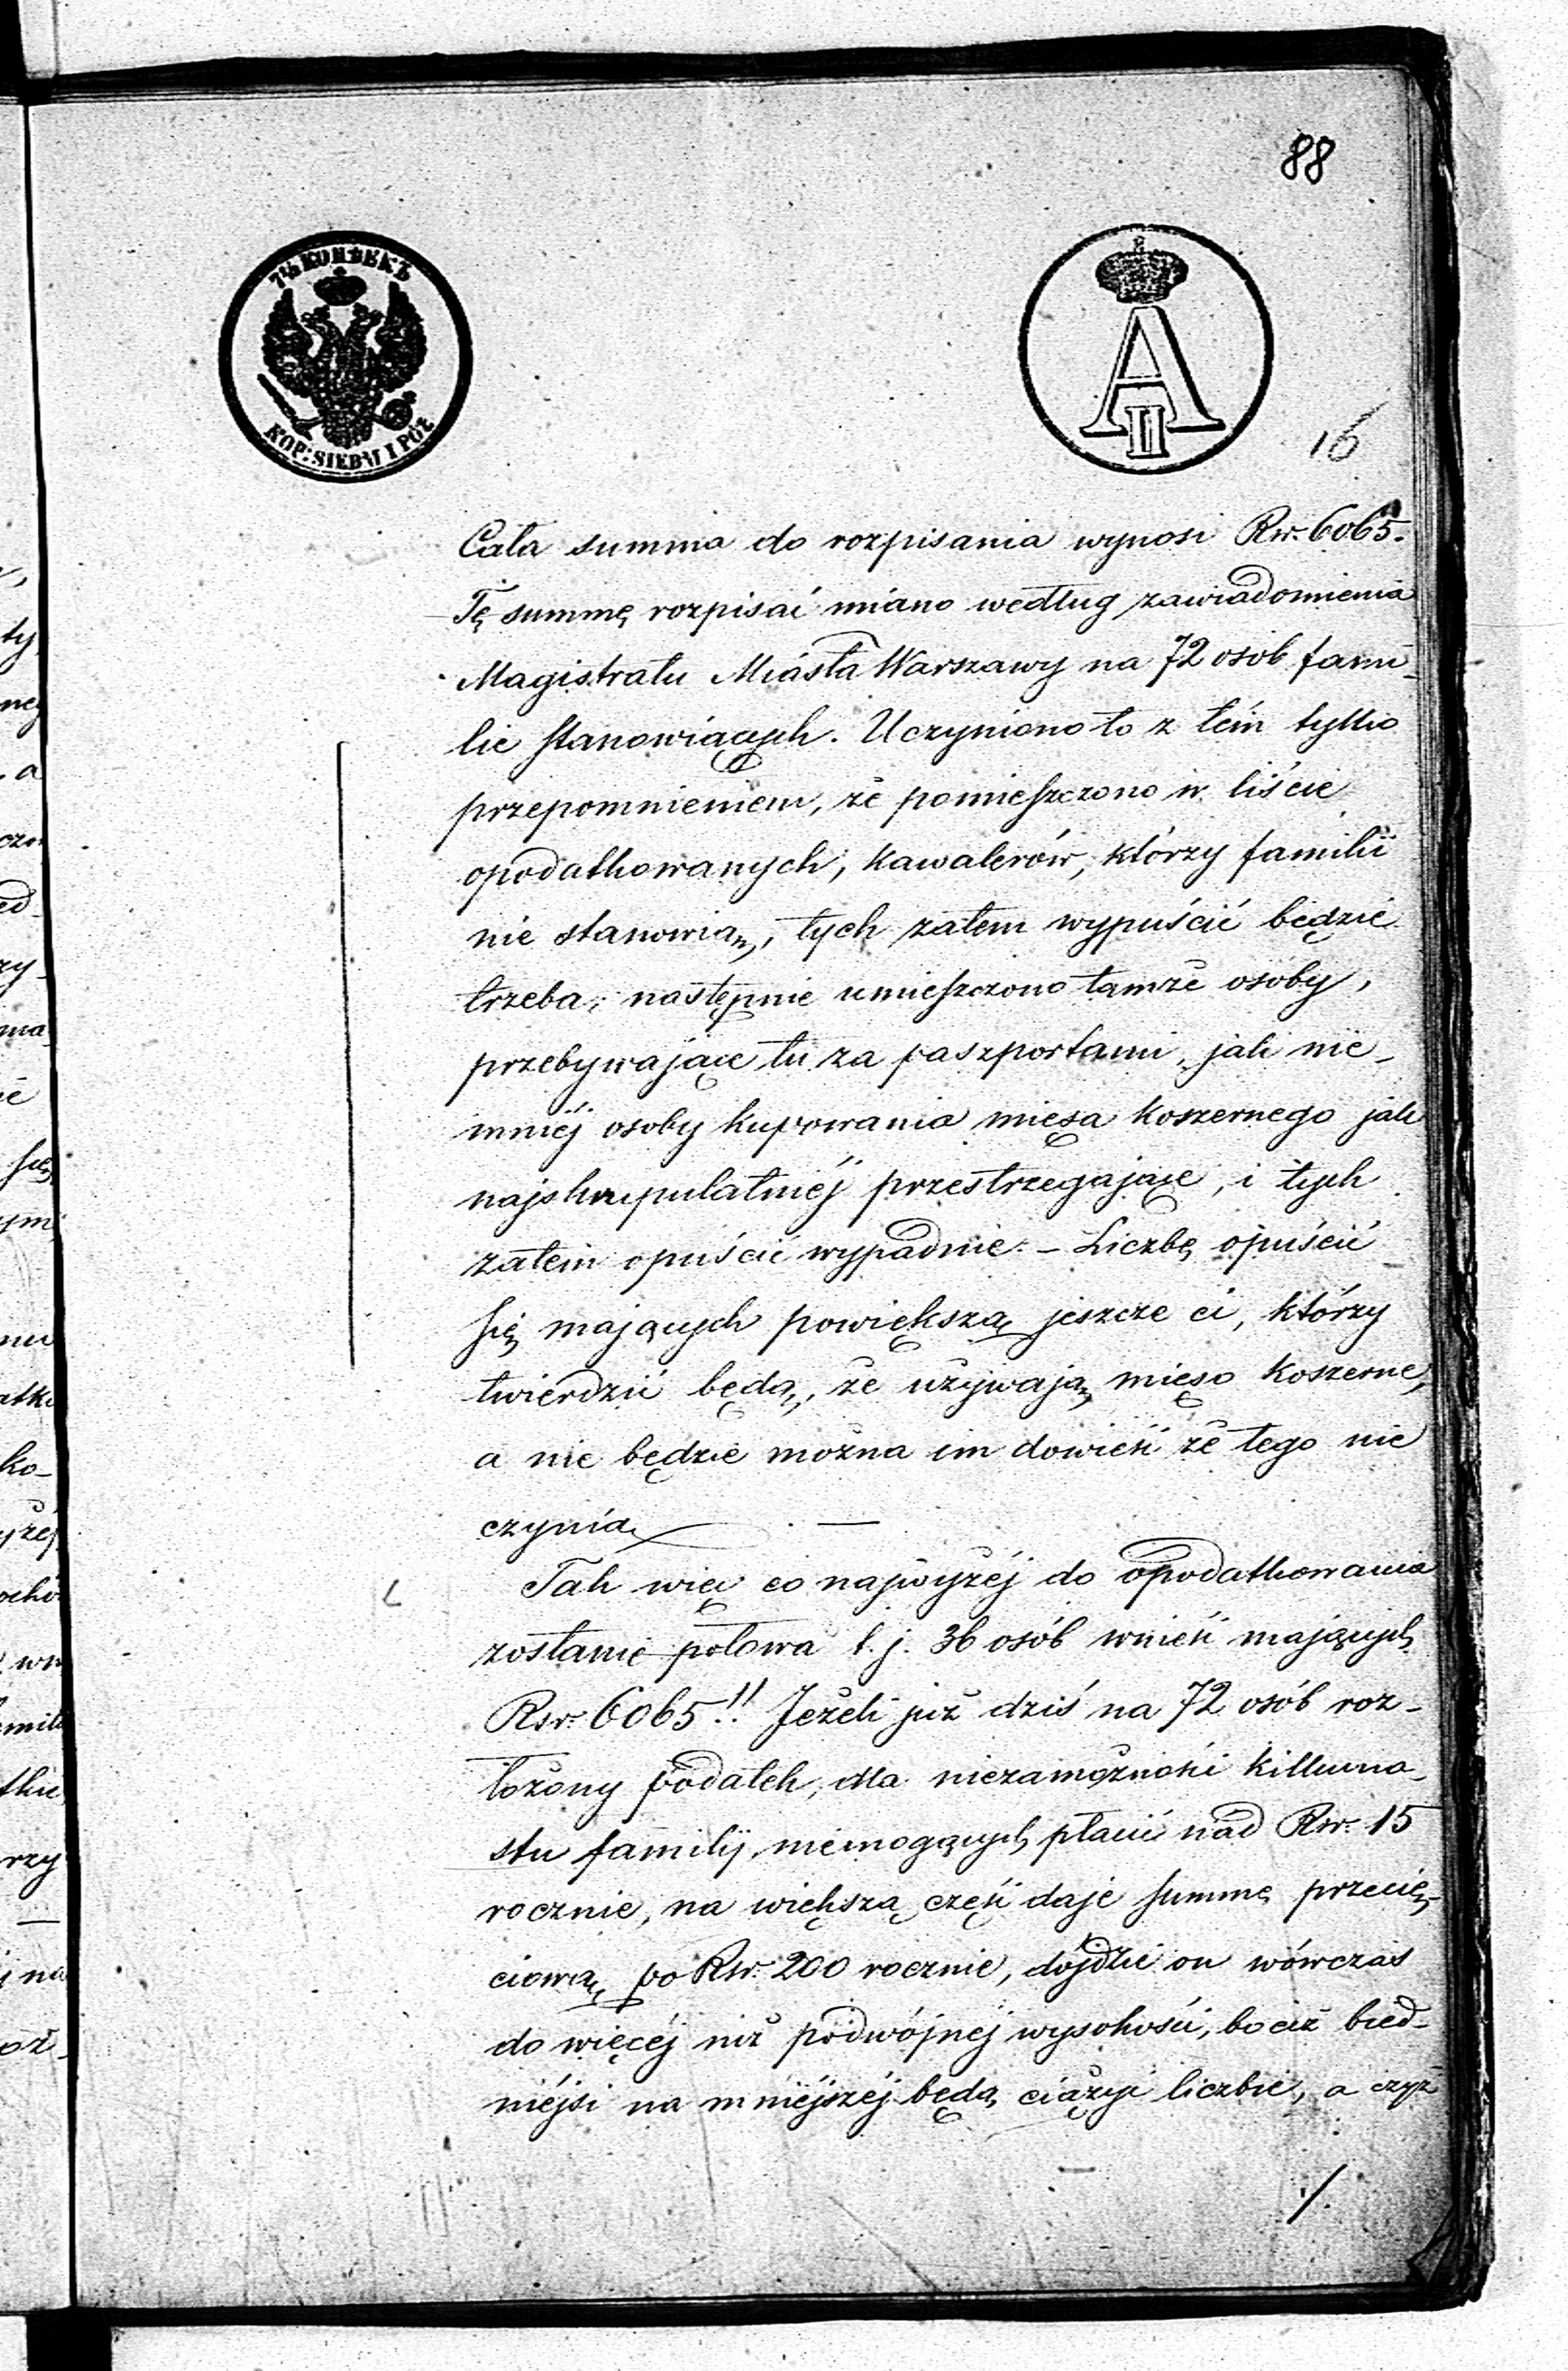 88
7½ КОПѢЕКЪ
KOP: SIEDM I PÓŁ
A II
16
Cała summa do rozpisania wynosi Rsr. 6065.
Tę summę rozpisać miano według zawiadomienia
Magistratu Miasta Warszawy na 72 osób fami-
lie stanowiących. Uczyniono to z tém tylko
przepomnieniem, że pomieszczono w liście
opodatkowanych, kawalerów, którzy familii
nie stanowią, tych zatem wypuścić będzie
trzeba; następnie umieszczono tamże osoby,
przebywające tu za paszportami, jak nie-
mniéj osoby kupowania mięsa koszernego jak
najskrupulatniéj przestrzegające, i tych
zatem opuścić wypadnie. – Liczbę opuścić
się mających powiększą jeszcze ci, którzy
twierdzić będą, że używają mięso koszerne,
a nie będzie można im dowieść że tego nie
czynią. —
Tak więc co najwyżéj do opodatkowania
zostanie połowa t. j. 36 osób wnieść mających
Rsr. 6065!! Jeżeli już dziś na 72 osób roz-
łożony podatek, dla niezamożności kilkuna-
stu familij, niemogących płacić nad Rsr. 15
rocznie, na większą część daje summę przecię-
ciową po Rsr. 200 rocznie, dójdzie on wówczas
do więcéj niż podwójnéj wysokości, bo ciż bied-
niéjsi na mniéjszéj będą ciążyć liczbie, a czyż
./.